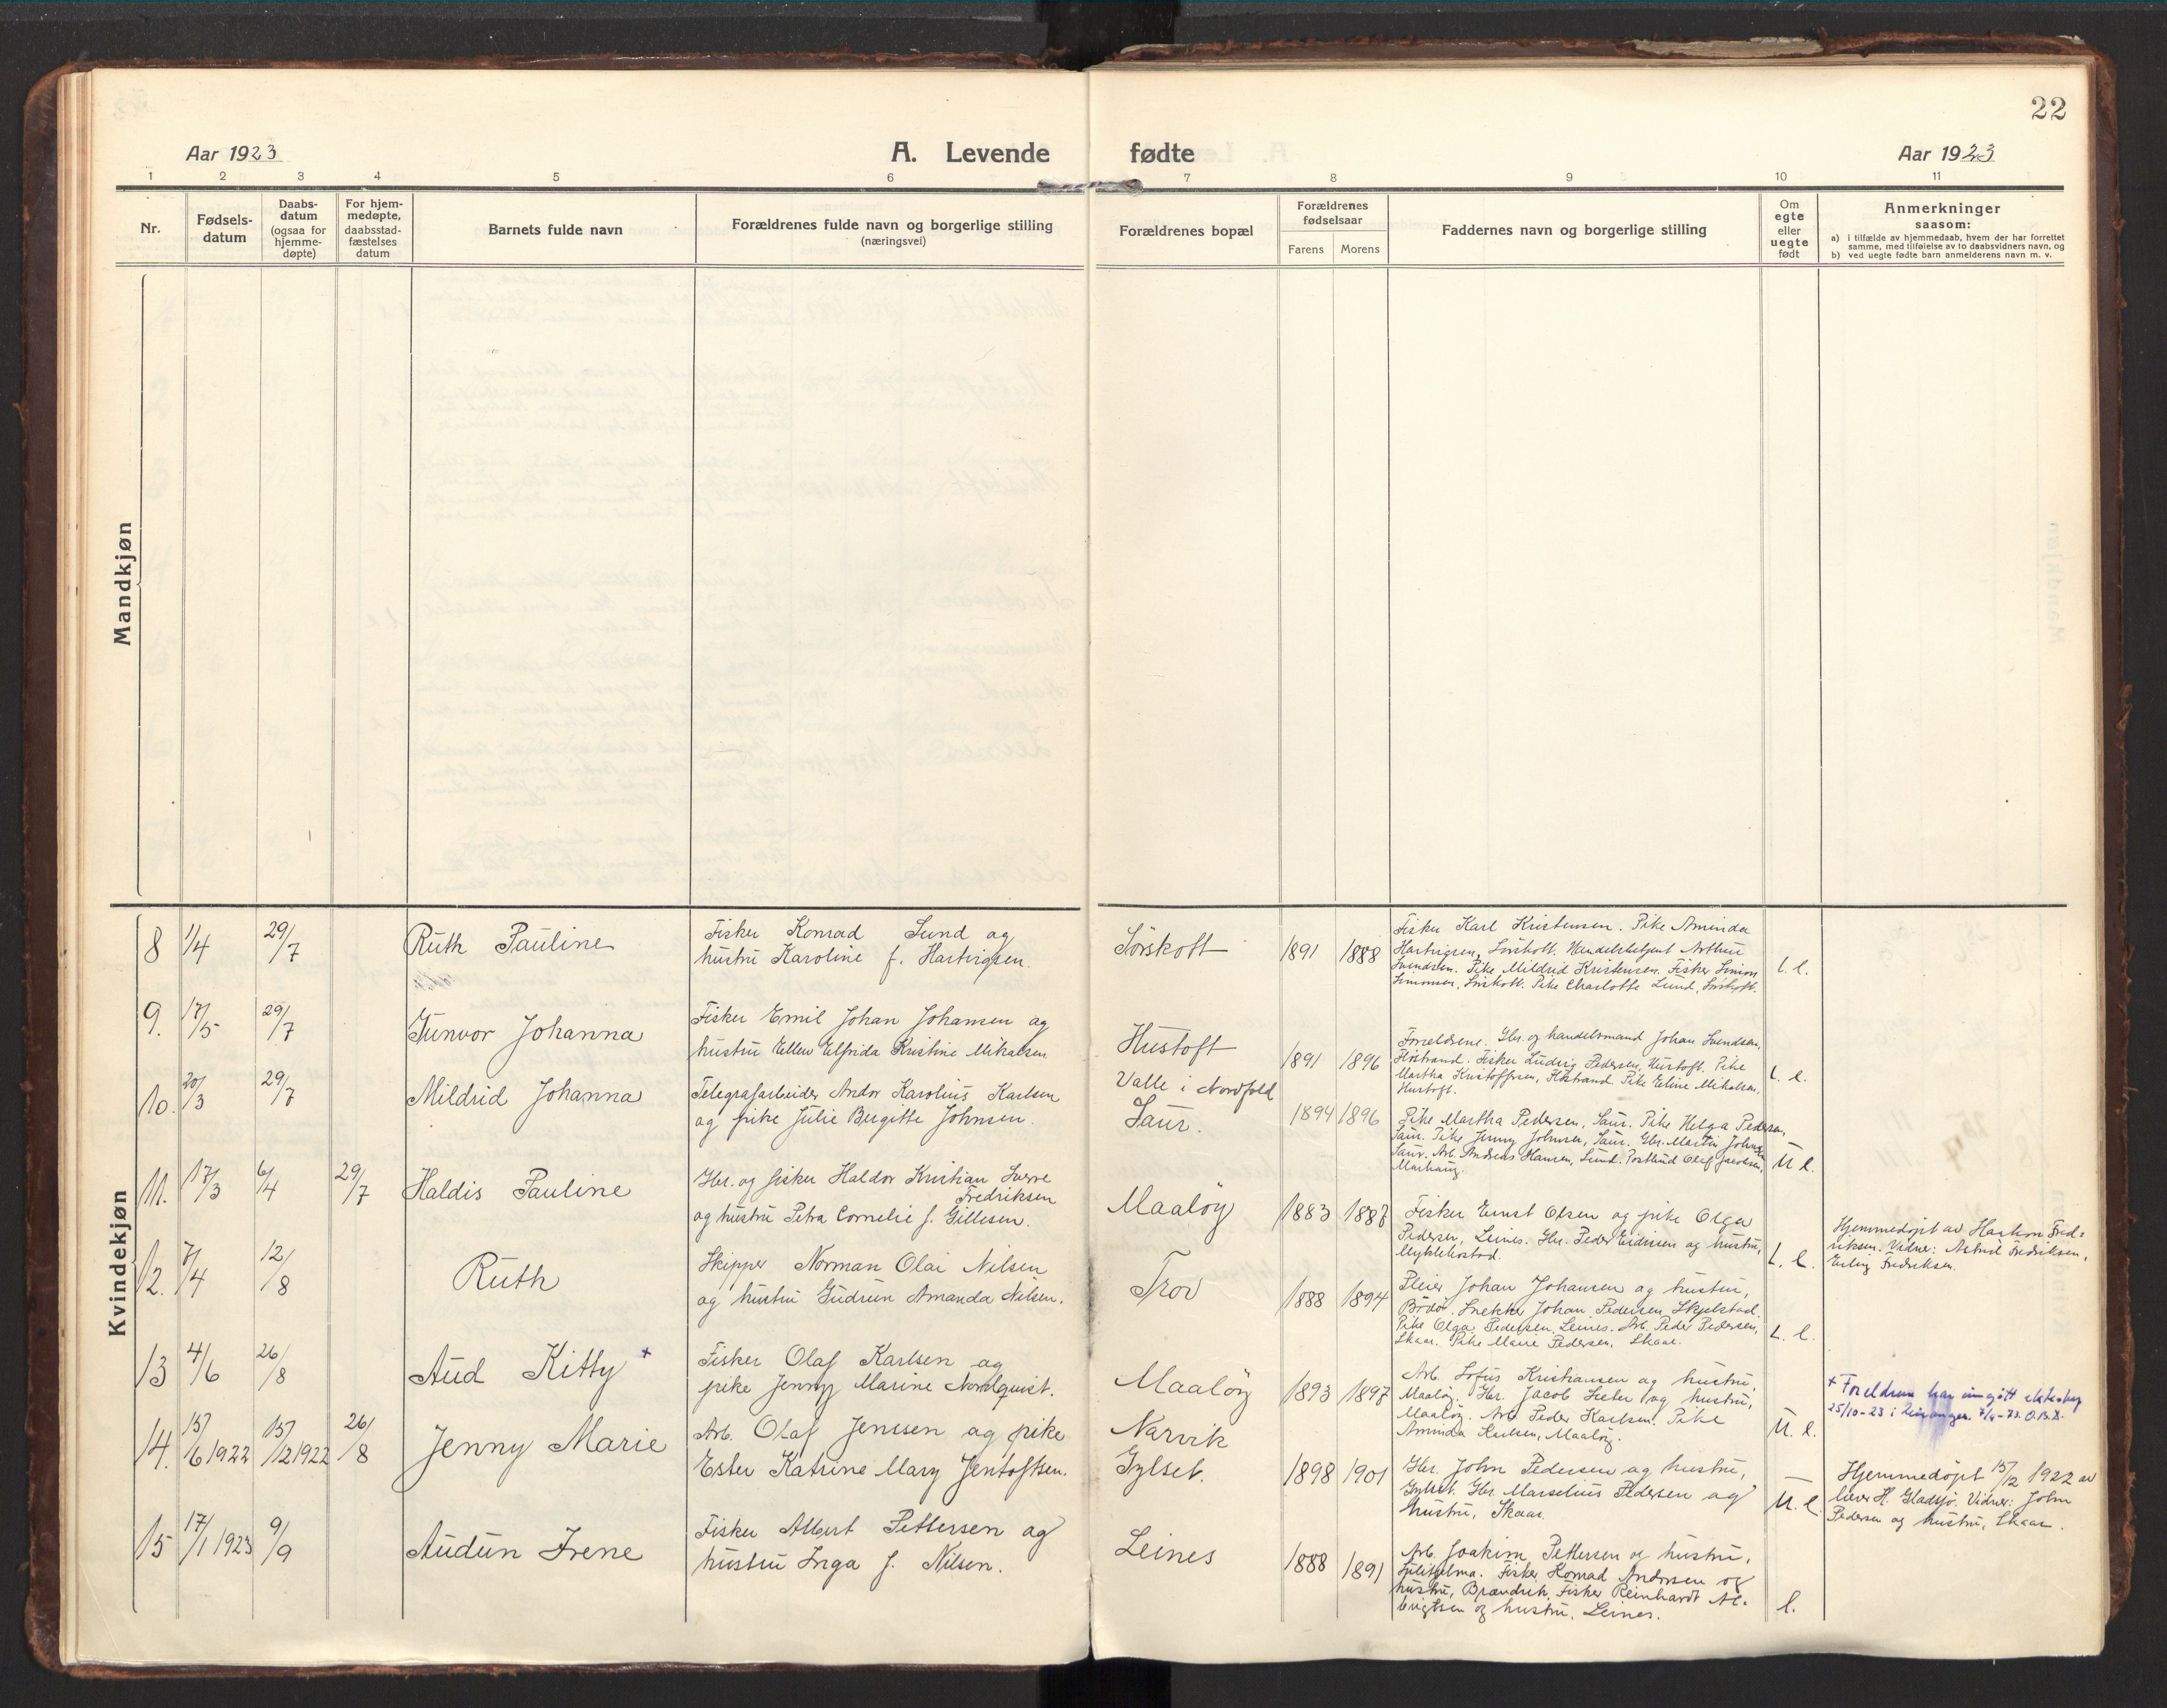 22
Aar 1923
A. Levende
fødte
Aar 1923
1 2 3 4 5 6 7 8 9 10 11
Nr.
Fødsels-
datum
Daabs-
datum
(ogsaa for
hjemme-
døpte)
For hjem-
medøpte,
daabsstad-
fæstelses
datum
Barnets fulde navn
Forældrenes fulde navn og borgerlige stilling
(næringsvei)
Forældrenes bopæl
Forældrenes
fødselsaar
Farens Morens
Faddernes navn og borgerlige stilling
Om
egte
eller
uegte
født
Anmerkninger
saasom:
a) i tilfælde av hjemmedaab, hvem der har forrettet
samme, med tilføielse av to daabsvidners navn, og
b) ved uegte fødte barn anmelderens navn m. v.
Mandkjøn
Kvindekjøn
8 1/4 29/7 Ruth Pauline
Fisker Konrad Lund og
hustru Karoline f. Hartvigsen.
Sørskott 1891 1888
Fisker Karl Kristensen. Pike Aminda
Hartvigsen, Sørskott. Handelsbetjent Arthur
Svendsen. Pike Mildrid Kristensen. Fisker Simon
Simonsen, Sørskott. Pike Charlotte Lund, Sørskott.
L. e.
9. 17/5 29/7 Gunvor Johanna
Fisker Emil Johan Johansen og
hustru Ellen Elfrida Kristine Mikalsen
Hustoft 1891 1896
Forældrene. Gbr. og handelsmand Johan Svendsen,
Fisker Ludvig Pedersen, Hustoft. Pike
Martha Kristoffersen, Pike Eline Mikalsen,
Hustoft.
L. e.
10. 20/3 29/7 Mildrid Johanna
Telegrafarbeider Andor Karolius Karlsen
og pike Julie Bergitte Johnsen.
Valle i Nordfold
Saur. 1894 1896
Pike Martha Pedersen, Saur. Pike Helga Pedersen,
Saur. Pike Jenny Johnsen, Saur. Gbr. Martin Johnsen
Saur. Arb. Andreas Hansen, Lund. Olaf Jacobsen,
U e.
11. 17/3 6/4 29/7 Haldis Pauline
Gbr. og fisker Haldor Kristian Sverre
Fredriksen
og hustru Petra Cornelie f. Gillesen.
Maaløy 1883 1887
Fisker Ernst Olsen og pike Olga
Pedersen, Leines. Gbr. Peder Eidissen og hustru,
Myklebostad.
L. e.
Hjemmedøpt av Haakon Fred-
riksen. Vidner: Astrid Fredriksen,
Erling Fredriksen.
12. 7/4 12/8 Ruth
Skipper Norman Olai Nilsen
og hustru Gudrun Amanda Nilsen.
Trov 1888 1894
Pleier Johan Johansen og hustru,
Bodø. Snekker Johan Pedersen, Skjelstad.
Pike Olga Pedersen, Leines. Arb. Peder Pedersen,
Skaar. Pike Marie Pedersen, Skaar.
L. e.
13 4/6 26/8 Aud Kitty +
Fisker Olaf Karlsen og
pike Jenny Marine Nordquist.
Maaløy 1893 1897
Arb. Sofus Kristiansen og hustru,
Maaløy. Gbr. Jacob og hustru,
Maaløy. Arb. Peder Karlsen. Pike
Aminda Karlsen, Maaløy.
U. e.
+ Foreldrene har inngått ekteskap
25/10-23 i Leiranger.
14. 15/6 1922 15/12 1922 26/8 Jenny Marie
Arb. Olaf Jenssen og pike
Ester Katrine Mary Jentoftsen.
Narvik
Gylset. 1898 1901
Gbr. John Pedersen og hustru,
Gylset. Gbr. Marselius Pedersen og
hustru, Skaar.
U. e.
Hjemmedøpt 15/12 1922 av
lærer H. Gladsjø. Vidner: John
Pedersen og hustru, Skaar.
15 17/1 1923 9/9 Audun Irene
Fisker Albert Pettersen og
hustru Inga f. Nilsen.
Leines 1888 1891
Arb. Joakim Pettersen og hustru,
Sulitjelma. Fisker Konrad Andersen og
hustru, Brændvik. Fisker Reinhardt Al-
brigtsen og hustru, Leines.
e.